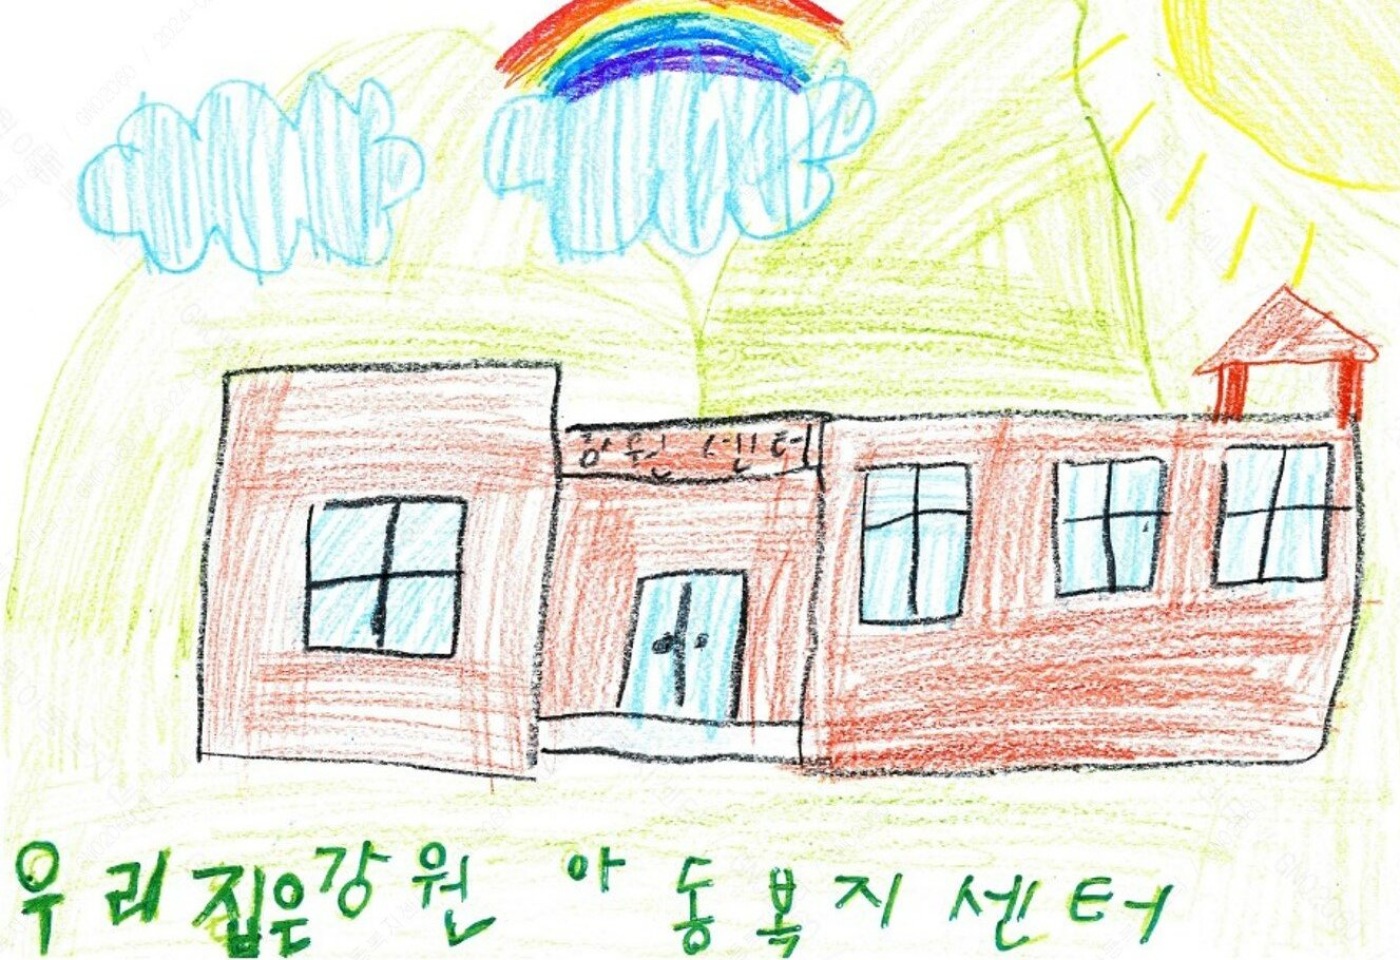 강원 센터
우리집은강원 아동복지센터